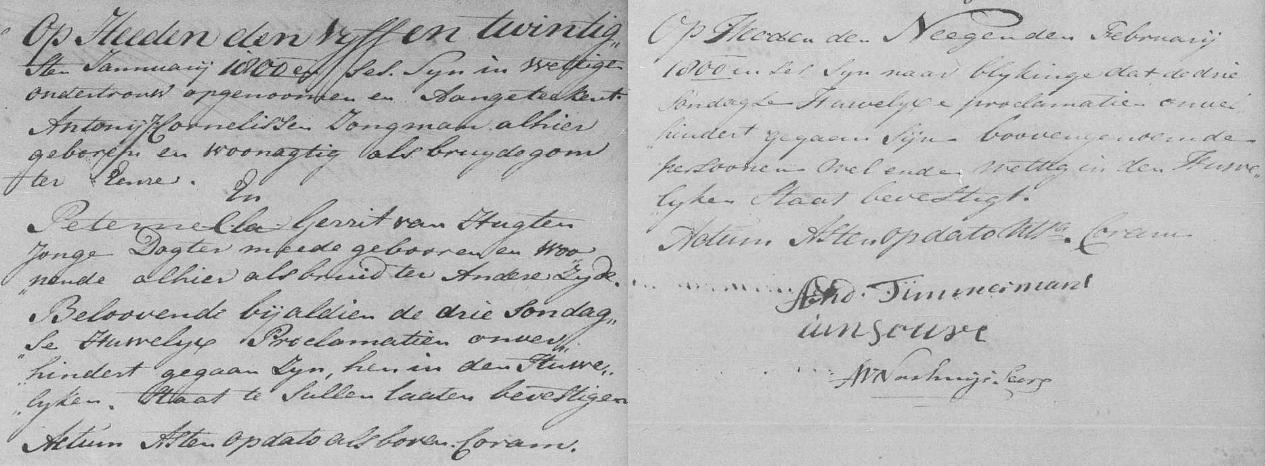 Op Heeden den vyff en twintig„
sten Jannuarij 1800 en ses Syn in wettigen
ondertrouw opgenoomen en Aangeteekent
Antonij Kornelissen Jongman alhier
geboren en woonagtig als bruydegom
ter Eenre.
En
Peternella Gerrit van Hugten
Jonge Dogter meede gebooren en woo
„nende alhier als bruid ter Andere Zyde.
Beloovende bij aldien de drie Sondag„
„se Huwelyxe Proclamatien onver„
„hindert gegaan Zyn, hen in den Huwe„
„lyken Staat te Sullen laaten bevestigen
Actum Asten op dato als boven. Coram.
Op Heeden den Neegenden Februarij
1800 en ses Syn naar blykinge dat de drie
Sondagse Huwelyxe proclamatien onver
hindert gegaan Syn boovengenoemde
persoonen wel ende wettig in den Huwe„
„lyken Staat bevestigt.
Actum Asten op dato Utsa. Coram
Timmermans